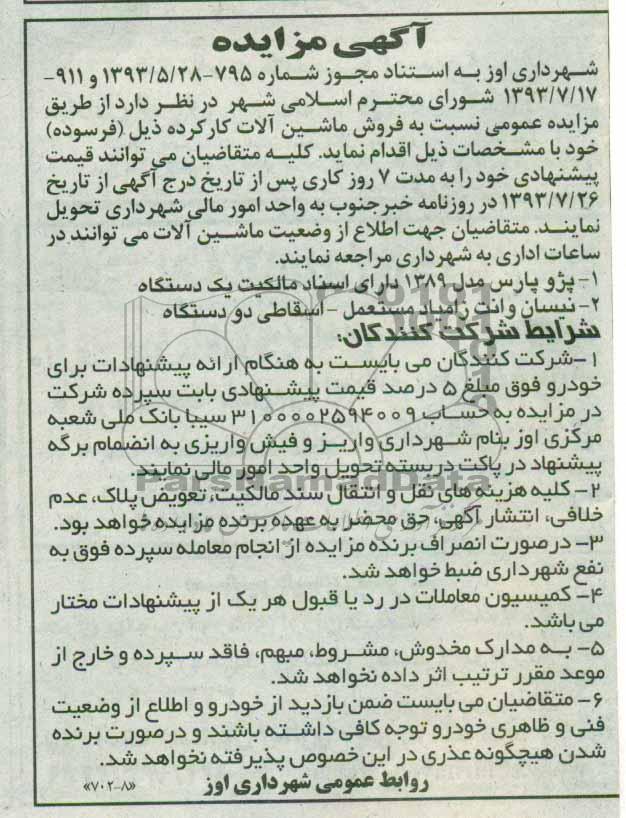 آگهی مزایده
شهرداری اوز به استناد مجوز شماره ۷۹۵-۱۳۹۳/۵/۲۸ و ۹۱۱-
۱۳۹۳/۷/۱۷ شورای محترم اسلامی شهر در نظر دارد از طریق
مزایده عمومی نسبت به فروش ماشین آلات کارکرده ذیل (فرسوده)
خود با مشخصات ذیل اقدام نماید. کلیه متقاضیان می توانند قیمت
پیشنهادی خود را به مدت ۷ روز کاری پس از تاریخ درج آگهی از تاریخ
۱۳۹۳/۷/۲۶ در روزنامه خبرجنوب به واحد امور مالی شهرداری تحویل
نمایند. متقاضیان جهت اطلاع از وضعیت ماشین آلات می توانند در
ساعات اداری به شهرداری مراجعه نمایند.
۱- پژو پارس مدل ۱۳۸۹ دارای اسناد مالکیت یک دستگاه
۲- نیسان وانت زامیاد مستعمل - اسقاطی دو دستگاه
شرایط شرکت کنندگان:
۱-شرکت کنندگان می بایست به هنگام ارائه پیشنهادات برای
خودرو فوق مبلغ ۵ درصد قیمت پیشنهادی بابت سپرده شرکت
در مزایده به حساب ۳۱۰۰۰۰۲۵۹۴۰۰۹ سیبا بانک ملی شعبه
مرکزی اوز بنام شهرداری واریز و فیش واریزی به انضمام برگه
پیشنهاد در پاکت دربسته تحویل واحد امور مالی نمایند
ParsNamadData
۲- کلیه هزینه های نقل و انتقال سند مالکیت، تعویض پلاک، عدم
خلافی، انتشار آگهی، حق محضر به عهده برنده مزایده خواهد بود.
۳- درصورت انصراف برنده مزایده از انجام معامله سپرده فوق به
نفع شهرداری ضبط خواهد شد.
۴- کمیسیون معاملات در رد یا قبول هر یک از پیشنهادات مختار
می باشد.
۵- به مدارک مخدوش، مشروط، مبهم، فاقد سپرده و خارج از
موعد مقرر ترتیب اثر داده نخواهد شد.
۶- متقاضیان می بایست ضمن بازدید از خودرو و اطلاع از وضعیت
فنی و ظاهری خودرو توجه کافی داشته باشند و درصورت برنده
شدن هیچگونه عذری در این خصوص پذیرفته نخواهد شد.
روابط عمومی شهرداری اوز
«۷۰۲-۸»